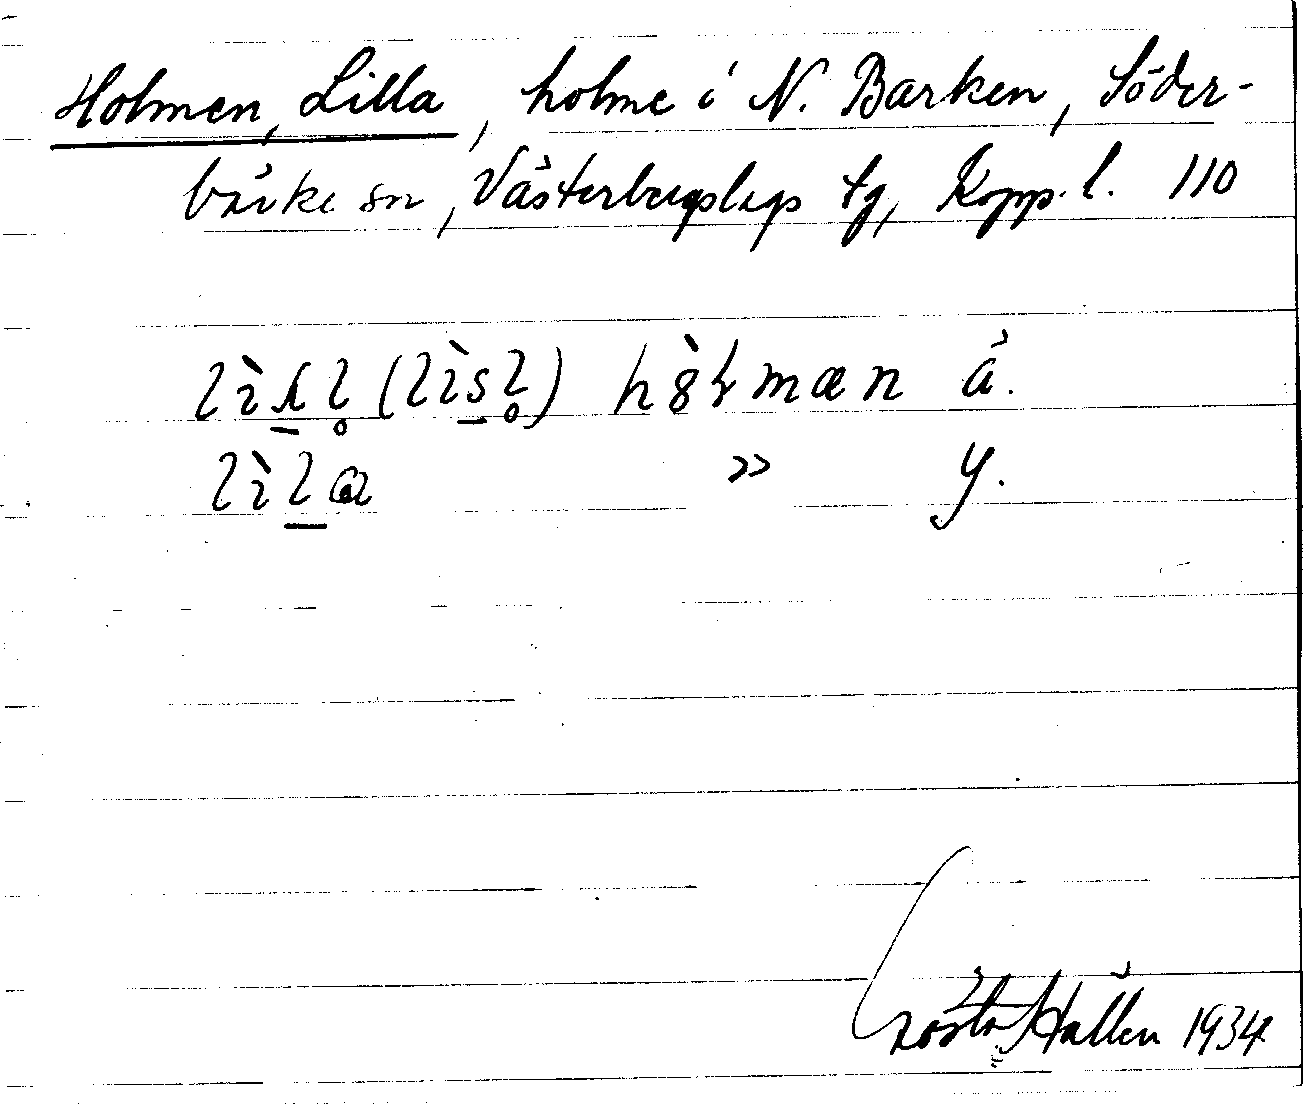 Holmen, Lilla, holme i N. Barken, Söder-
bärke sn, Västerbergslags tg, Kopp. l. 110
(lìsl̥) å.
lìla » y.
Gösta Hallén 1934